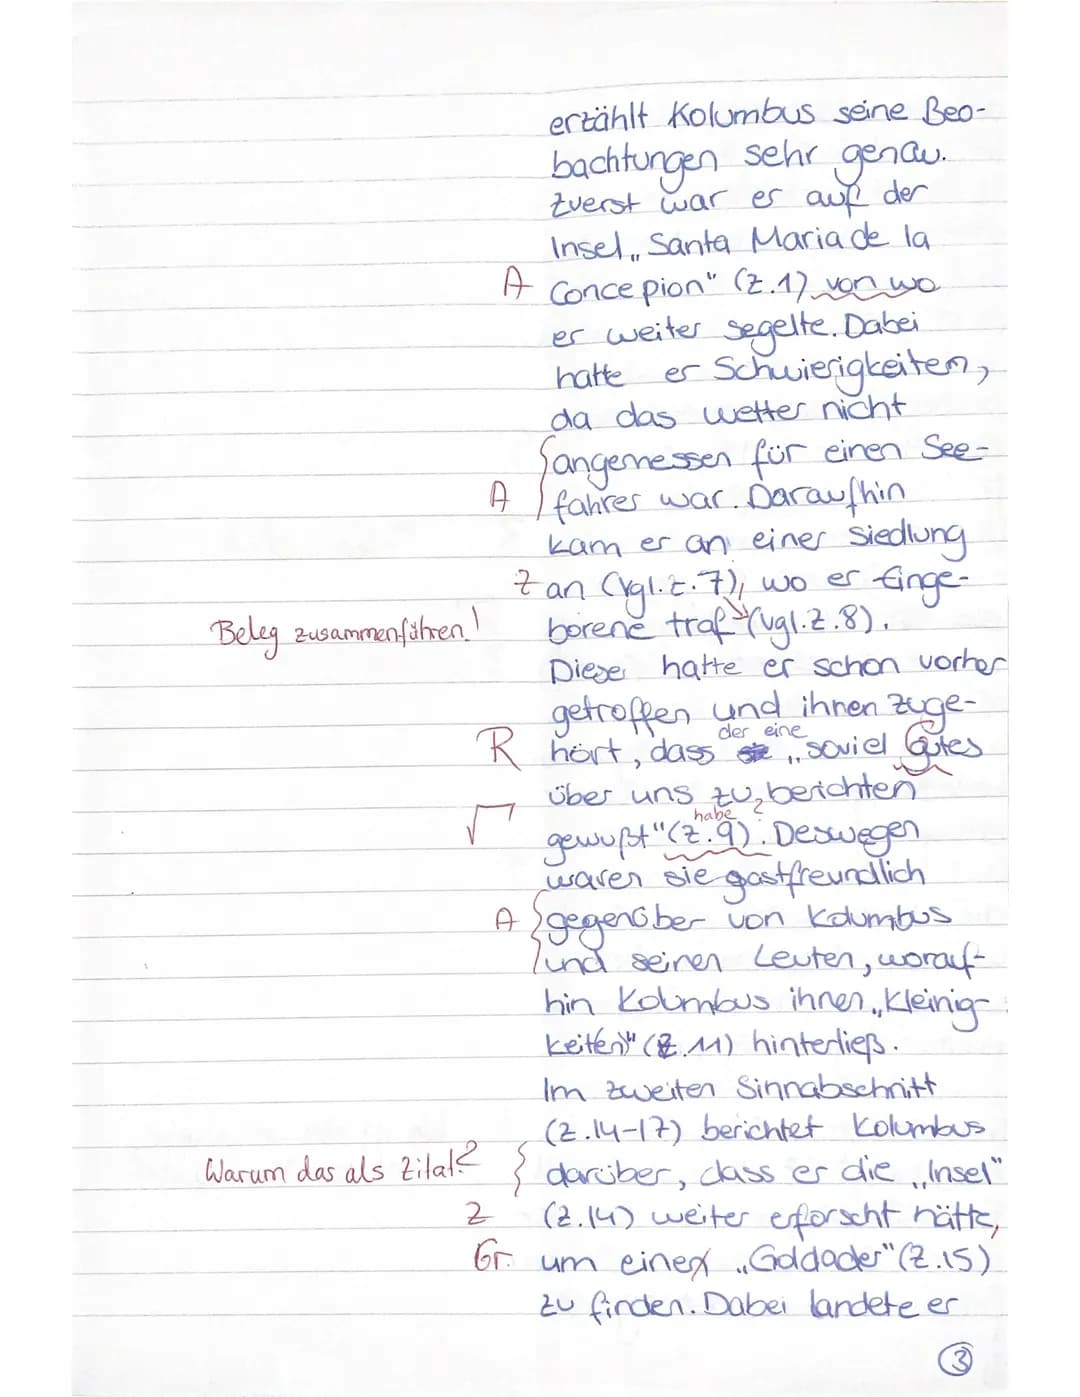 erzählt Kolumbus seine Beo-
bachtungen sehr genau.
Zuerst war er auf der
Insel „Santa Maria de la
A Concepion" (Z.1) von wo
er weiter segelte. Dabei
hatte er Schwierigkeiten,
da das Wetter nicht
angemessen für einen See-
A fahrer war. Daraufhin
kam er an einer Siedlung
Z an (vgl. Z. 7), wo er Einge-
Beleg zusammenführen! borene traf (vgl. Z. 8).
Diese hatte er schon vorher
getroffen und ihnen zuge-
der eine
R hört, dass „soviel Gutes
über uns zu berichten
habe
√ gewußt" (Z.9). Deswegen
waren sie gastfreundlich
A gegenüber von Kolumbus
und seinen Leuten, worauf-
hin Kolumbus ihnen „Kleinig-
keiten" (Z. 11) hinterließ.
Im zweiten Sinnabschnitt
(Z.14-17) berichtet Kolumbus
Warum das als Zitat? darüber, dass er die „Insel"
Z (Z.14) weiter erforscht hätte,
Gr. um einen „Goldader" (Z.15)
zu finden. Dabei landete er
3